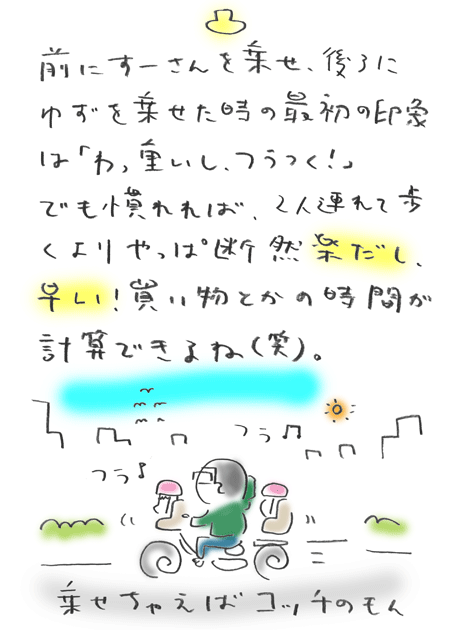 前にすーさんを乗せ、後ろに
ゆずを乗せた時の最初の印象
は「わっ重いし、フラつく!」
でも慣れれば、2人連れて歩
くよりやっぱ断然楽だし、
早い!買い物とかの時間が
計算できるね(笑)。
フラ♫
フラ♪
乗せちゃえばコッチのもん